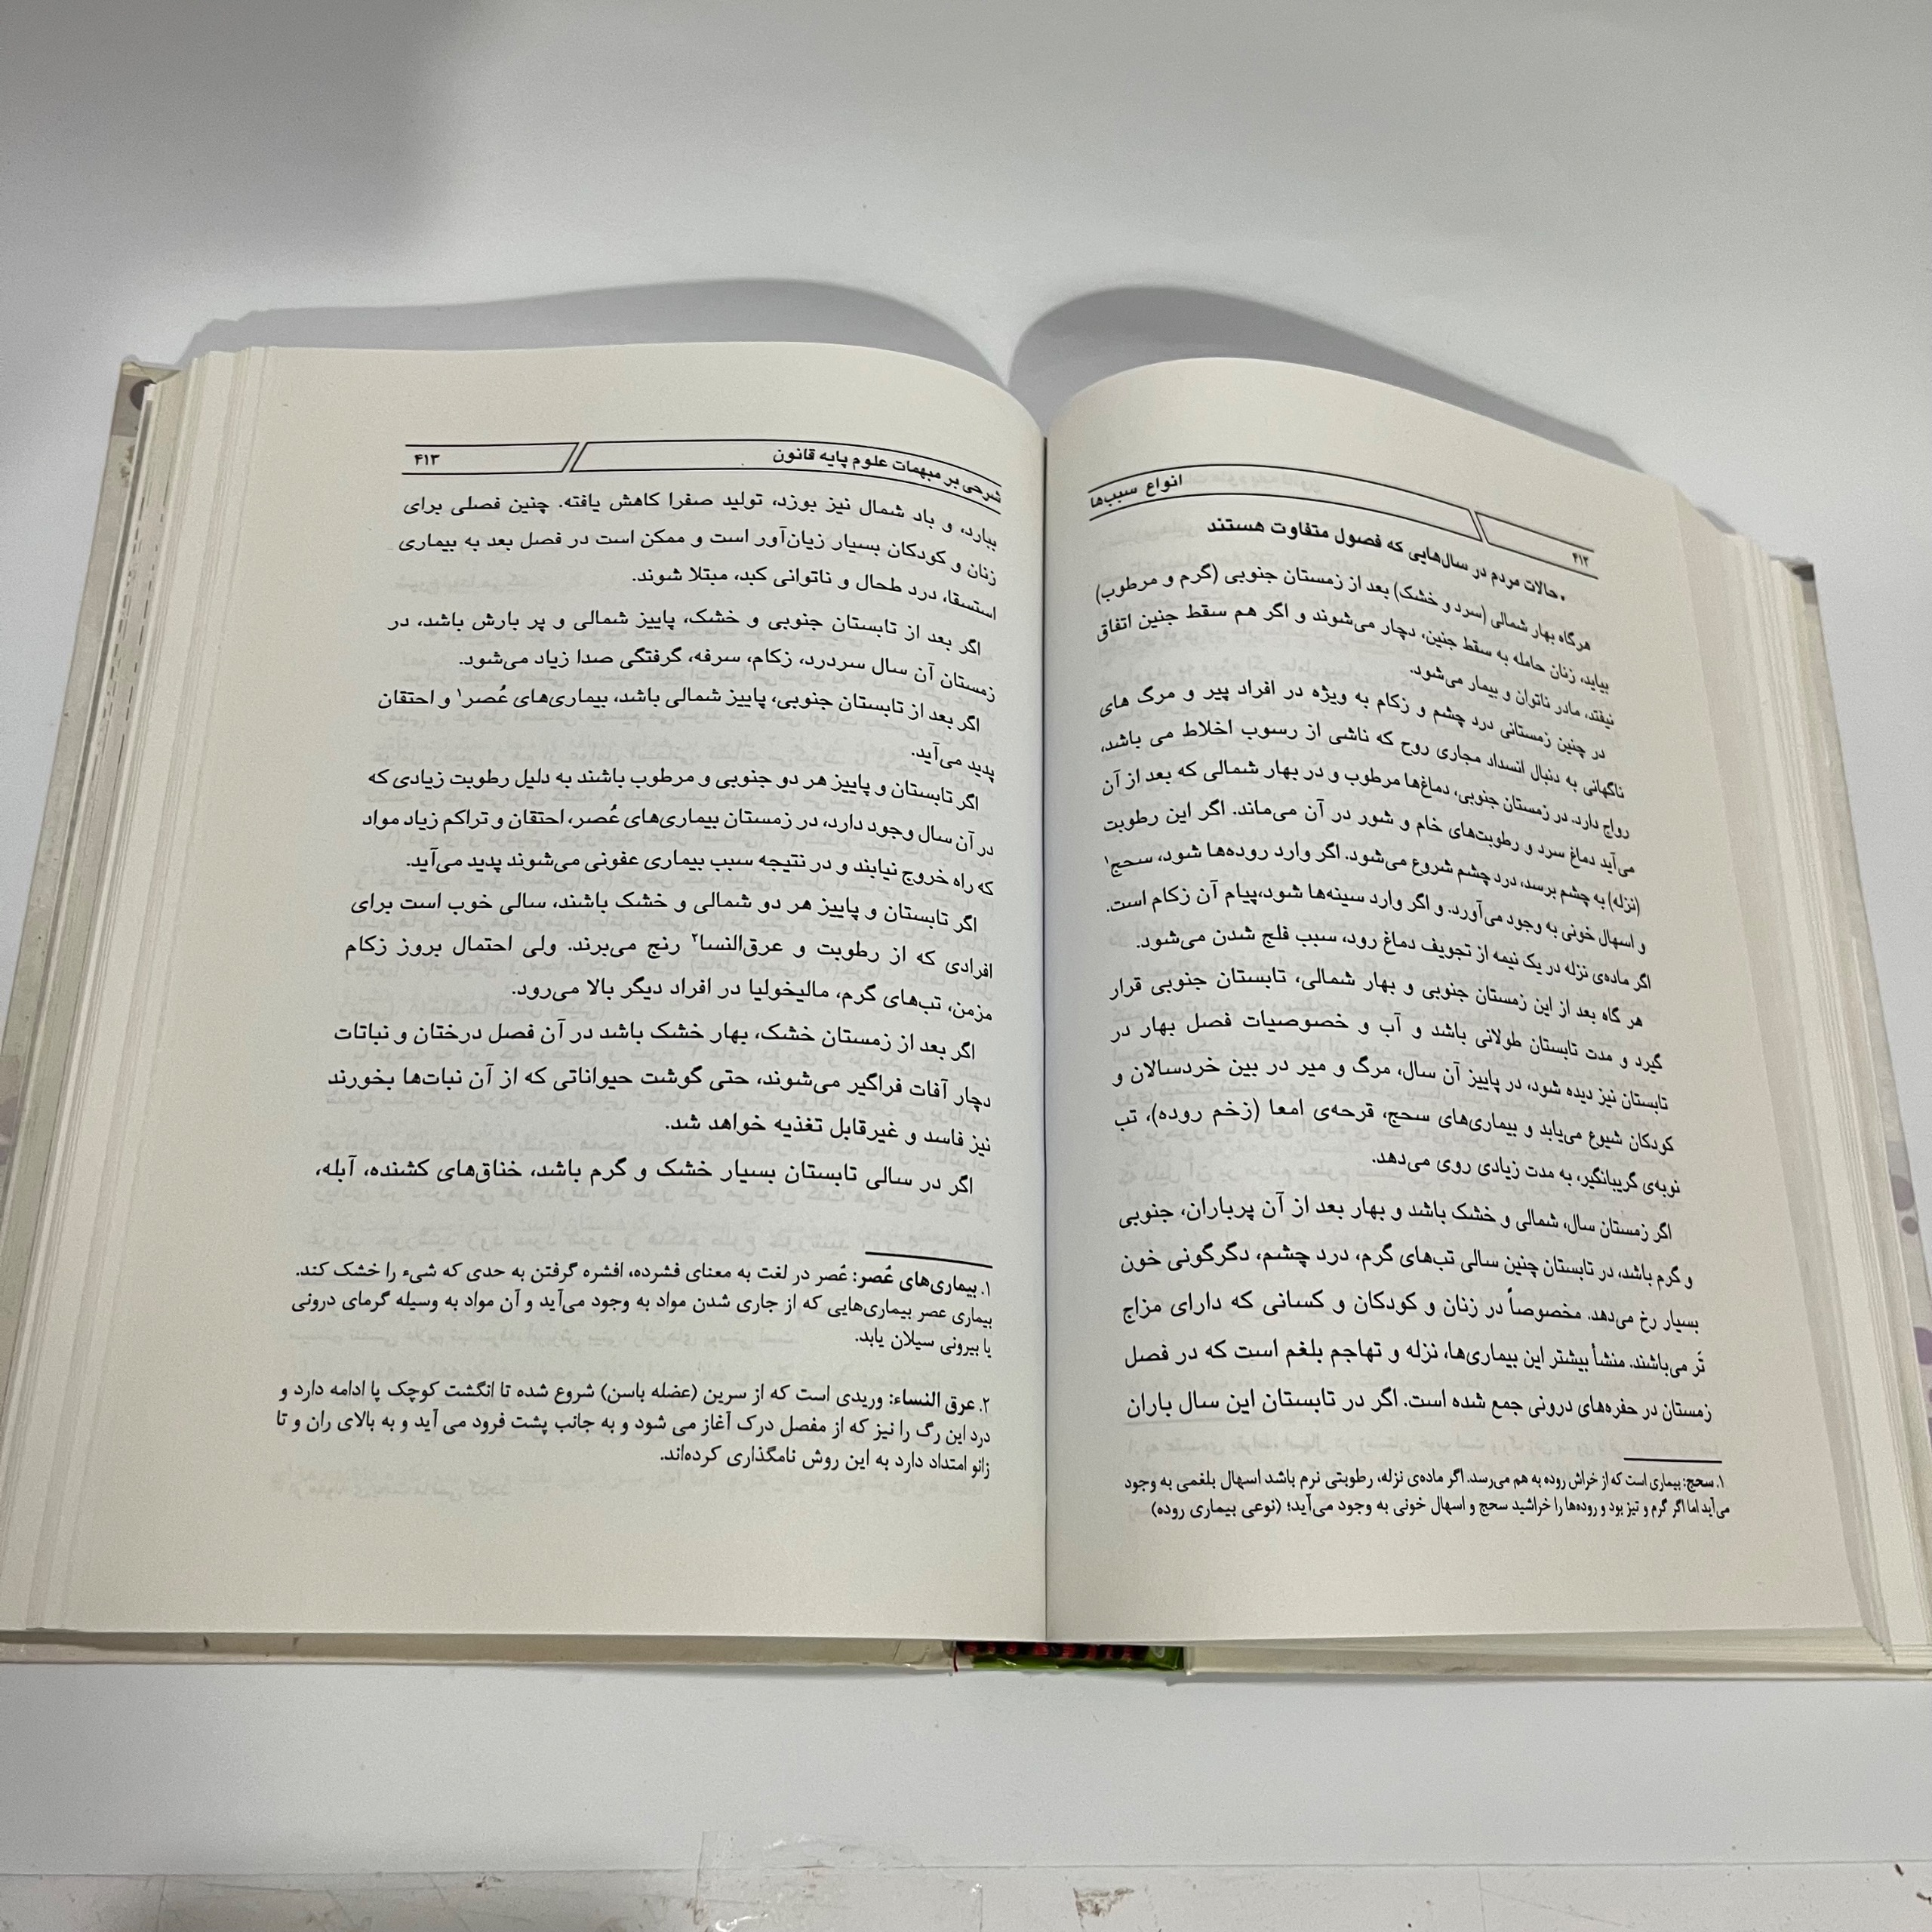 انواع سبب‌ها
۴۱۲
• حالات مردم در سال‌هایی که فصول متفاوت هستند
هرگاه بهار شمالی (سرد و خشک) بعد از زمستان جنوبی (گرم و مرطوب)
بیاید، زنان حامله به سقط جنین، دچار می‌شوند و اگر هم سقط جنین اتفاق
نیفتد، مادر ناتوان و بیمار می‌شود.
در چنین زمستانی درد چشم و زکام به ویژه در افراد پیر و مرگ های
ناگهانی به دنبال انسداد مجاری روح که ناشی از رسوب اخلاط می باشد،
رواج دارد. در زمستان جنوبی، دماغ‌ها مرطوب و در بهار شمالی که بعد از آن
می‌آید دماغ سرد و رطوبت‌های خام و شور در آن می‌ماند. اگر این رطوبت
(نزله) به چشم برسد، درد چشم شروع می‌شود. اگر وارد روده‌ها شود، سحج۱
و اسهال خونی به وجود می‌آورد. و اگر وارد سینه‌ها شود،پیام آن زکام است.
اگر ماده‌ی نزله در یک نیمه از تجویف دماغ رود، سبب فلج شدن می‌شود.
هر گاه بعد از این زمستان جنوبی و بهار شمالی، تابستان جنوبی قرار
گیرد و مدت تابستان طولانی باشد و آب و خصوصیات فصل بهار در
تابستان نیز دیده شود، در پاییز آن سال، مرگ و میر در بین خردسالان و
کودکان شیوع می‌یابد و بیماری‌های سحج، قرحه‌ی امعا (زخم روده)، تب
نوبه‌ی گریبانگیر، به مدت زیادی روی می‌دهد.
اگر زمستان سال، شمالی و خشک باشد و بهار بعد از آن پرباران، جنوبی
و گرم باشد، در تابستان چنین سالی تب‌های گرم، درد چشم، دگرگونی خون
بسیار رخ می‌دهد. مخصوصاً در زنان و کودکان و کسانی که دارای مزاج
تَر می‌باشند. منشأ بیشتر این بیماری‌ها، نزله و تهاجم بلغم است که در فصل
زمستان در حفره‌های درونی جمع شده است. اگر در تابستان این سال باران
۱. سحج: بیماری است که از خراش روده به هم می‌رسد. اگر ماده‌ی نزله، رطوبتی نرم باشد اسهال بلغمی به وجود
می‌آید اما اگر گرم و تیز بود و روده‌ها را خراشید سحج و اسهال خونی به وجود می‌آید؛ (نوعی بیماری روده)
شرحی بر مبهمات علوم پایه قانون
۴۱۳
ببارد، و باد شمال نیز بوزد، تولید صفرا کاهش یافته. چنین فصلی برای
زنان و کودکان بسیار زیان‌آور است و ممکن است در فصل بعد به بیماری
استسقا، درد طحال و ناتوانی کبد، مبتلا شوند.
اگر بعد از تابستان جنوبی و خشک، پاییز شمالی و پر بارش باشد، در
زمستان آن سال سردرد، زکام، سرفه، گرفتگی صدا زیاد می‌شود.
اگر بعد از تابستان جنوبی، پاییز شمالی باشد، بیماری‌های عُصر۱ و احتقان
پدید می‌آید.
اگر تابستان و پاییز هر دو جنوبی و مرطوب باشند به دلیل رطوبت زیادی که
در آن سال وجود دارد، در زمستان بیماری‌های عُصر، احتقان و تراکم زیاد مواد
که راه خروج نیابند و در نتیجه سبب بیماری عفونی می‌شوند پدید می‌آید.
اگر تابستان و پاییز هر دو شمالی و خشک باشند، سالی خوب است برای
افرادی که از رطوبت و عرق‌النسا۲ رنج می‌برند. ولی احتمال بروز زکام
مزمن، تب‌های گرم، مالیخولیا در افراد دیگر بالا می‌رود.
اگر بعد از زمستان خشک، بهار خشک باشد در آن فصل درختان و نباتات
دچار آفات فراگیر می‌شوند، حتی گوشت حیواناتی که از آن نبات‌ها بخورند
نیز فاسد و غیرقابل تغذیه خواهد شد.
اگر در سالی تابستان بسیار خشک و گرم باشد، خناق‌های کشنده، آبله،
۱. بیماری‌های عُصر: عُصر در لغت به معنای فشرده، افشره گرفتن به حدی که شیء را خشک کند.
بیماری عصر بیماری‌هایی که از جاری شدن مواد به وجود می‌آید و آن مواد به وسیله گرمای درونی
یا بیرونی سیلان یابد.
۲. عرق النساء: وریدی است که از سرین (عضله باسن) شروع شده تا انگشت کوچک پا ادامه دارد و
درد این رگ را نیز که از مفصل درک آغاز می شود و به جانب پشت فرود می آید و به بالای ران و تا
زانو امتداد دارد به این روش نامگذاری کرده‌اند.